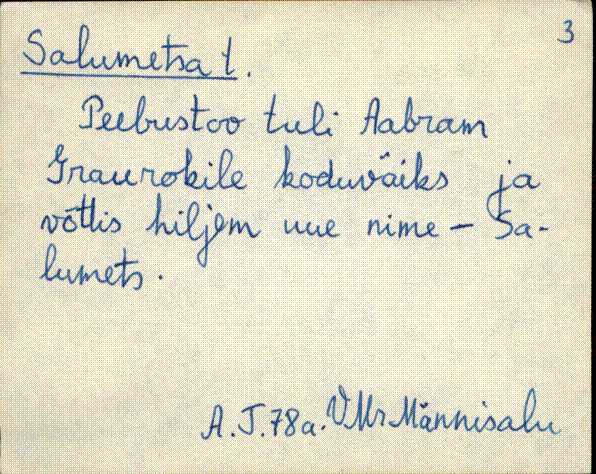 3
Salumetsa t.
Peebustoo tuli Aabram
Graurokile koduväiks ja
võttis hiljem uue nime – Sa-
lumets.
A. J. 78 a. VMr Männisalu